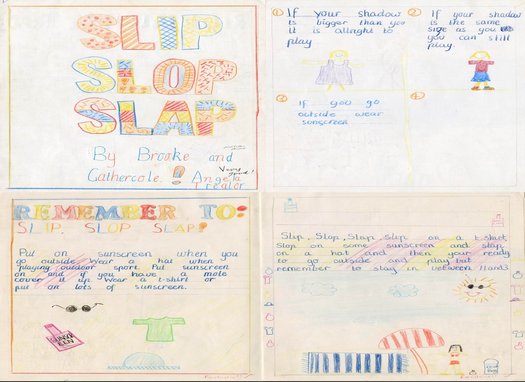 SLIP
SLOP
SLAP
By Brooke and
Cathercole. Angela
Trealor
Very good!
① If your shadow
is bigger than you
it is allright to
play
② If your shadow
is the same
size as you
you can still
play
③ If you go
outside wear
sunscreen
④
REMEMBER TO:
SLIP, SLOP SLAP!
Put on sunscreen when you
go outside. Wear a hat when
playing outdoor sport. Put sunscreen
on and if you have a mole
cover it up. Wear a t-shirt or
put on lots of sunscreen.
SUNSCREEN
Slip, Slop, Slap, Slip on a t-shirt,
Slop on some sunscreen and slap
on a hat and then your ready
to go outside and play but
remember to stay in between 11 and 3